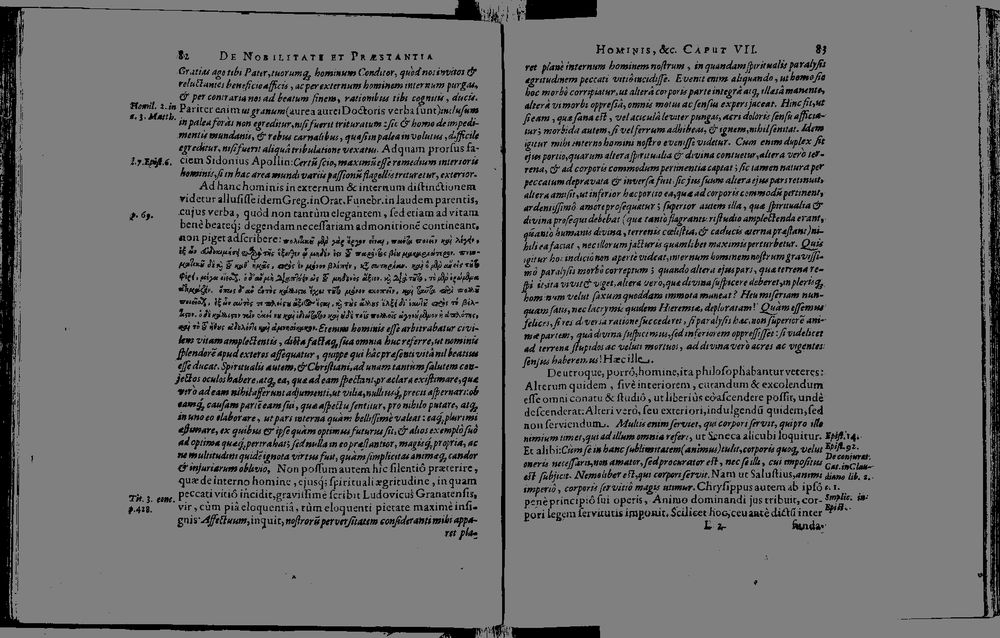 82 DE NOBILITATE ET PRÆSTANTIA
Gratias ago tibi Pater, tuorumq; hominum Conditor, quòd nos invitos &
reluctantes beneficio afficis, ac per externum hominem internum purgas,
& per contraria nos ad beatum finem, rationibus tibi cognitis, ducis.
Homil. 2. in
a. 3. Matth.
Pariter enim ut granum (aurea aurei Doctoris verba sunt) inclusum
in palea foràs non egreditur, nisi fuerit trituratum: sic & homo de impedi-
mentis mundanis, & rebus carnalibus, quasi in palea involutus, difficile
egreditur, nisi fuerit aliquâ tribulatione vexatus. Ad quam prorsus fa-
l. 7. Epist. 6.
ciem Sidonius Apollin: Certũ scio, maximũ esse remedium interioris
hominis, si in hac area mundi variis passionũ flagellis trituretur, exterior.
Ad hanc hominis in externum & internum distinctionem
videtur allusisse idem Greg. in Orat. Funebr. in laudem parentis,
p. 69.
cujus verba, quòd non tantùm elegantem, sed etiam ad vitam
benè beateq; degendam necessariam admonitione contineant,
non piget adscribere:
Etenim hominis esse arbitrabatur civi-
lem vitam amplectentis, dicta factaq; sua omnia huc referre, ut nominis
splendorẽ apud exteros assequatur, quippe qui hâc præsenti vitâ nil beatius
esse ducat. Spiritualis autem, & Christiani, ad unam tantum salutem con-
jectos oculos habere, atq; ea, quæ ad eam spectant, præclara existimare, quæ
verò ad eam nihil afferunt adjumenti, ut vilia, nulliusq; precii aspernari: ob
eamq; causam parùm eam sui, quæ aspectu sentitur, pro nihilo putare, atq;
in uno eo elaborare, ut pars interna quàm bellissimè valeat: eaq; plurimi
æstimare, ex quibus & ipse quàm optimus futurus sit, & alios exemplo suo
ad optima quæq; pertrahat; sed nulla in eo præstantior, magisq; propria, ac
ne multitudini quidem ignota virtus fuit, quàm simplicitas animæq; candor
& injuriarum oblivio. Non possum autem hîc silentiô præterire,
quæ de interno homine, ejusq; spirituali ægritudine, in quam
peccati vitiô incidit, gravissimè scribit Ludovicus Granatensis,
Tit. 3. conc.
p. 428.
vir, cùm piâ eloquentiâ, tùm eloquenti pietate maximè insi-
gnis: Affectuum, inquit, nostrorũ perversitatem consideranti mihi appa-
ret pla-
HOMINIS, &c. CAPUT VII. 83
ret planè internum hominem nostrum, in quandam spiritualis paralysis
ægritudnem peccati vitiô incidisse. Evenit enim aliquando, ut homo sic
hoc morbô corripiatur, ut alterâ corporis parte integrâ atq; illæsâ manente,
altera vi morbi oppressa, omnis motus ac sensus expers jaceat. Hinc fit, ut
si eam, quæ sana est, vel aciculâ leviter pungas, acri doloris sensu afficia-
tur; morbidæ autem, si vel ferrum adhibeas, & ignem, nihil sentiat. Idem
igitur mihi interno homini nostro evenisse videtur. Cum enim duplex sit
ejus portio, quarum altera spiritualia & divina contuetur, altera verò ter-
rena, & ad corporis commodum pertinentia captat; sic tamen natura per
peccatum depravata & inversa fuit. sic jus suum altera ejus pars retinuit,
altera amisit, ut inferior hæc portio ea, quæ ad corporis commodũ pertinent,
ardentissimò amore prosequatur; superior autem illa, quæ spiritualia &
divina prosequi debebat (quæ tantò flagrantiori studio amplectenda erant,
quantò humanis divina, terrenis cœlestia, & caducis æterna præstant) ni-
hil ea faciat, nec illorum jacturis quamlibet maximis perturbetur. Quis
igitur hoc indiciô non apertè videat, internum hominem nostrum gravissi-
mô paralysis morbô correptum; quando altera ejus pars, quæ terrena re-
spicit, ita vivit & viget, altera verò, quæ divina suspicere deberet, in plerisq;
hominum velut saxum quoddam immota maneat? Heu miseriam nun-
quam satis, nec lacrymis quidem Hieremiæ, deploratam! Quàm essemus
felices, si res diversa ratione succederet, si paralysis hæc, non superiorẽ ani-
mæ partem, quâ divina suspicimus, sed inferiorem oppressisset: si videlicet
ad terrena stupidos ac velut mortuos, ad divina verò acres ac vigentes
sensus haberemus! Hæc ille.
De utroque, porrò, homine, ita philosophabantur veteres:
Alterum quidem, sivè interiorem, curandum & excolendum
esse omni conatu & studiô, ut liberiùs eò ascendere possit, undè
descenderat: Alteri verò, seu exteriori, indulgendũ quidem, sed
non serviendum. Multis enim serviet, qui corpori servit, qui pro illo
nimium timet, qui ad illum omnia refert, ut Seneca alicubi loquitur.
Epist. 14.
Epist. 92.
Et alibi: Cum se in hanc sublimitatem (animus) tulit, corporis quoq; velut
oneris necessarii, non amator, sed procurator est, nec se illi, cui impositus
De conjurat.
Cat. in Clau-
diano lib. 2.
c. 1.
est subjicit. Nemo liber est, qui corpori servit. Nam ut Salustius, animi
imperiô, corporis servitiô magis utimur. Chrysippus autem ab ipsô
Simplic. in
Epist.
penè principiô sui operis, Animo dominandi jus tribuit, cor-
pori legem servitutis imponit. Scilicet hoc, ceu antè dictũ inter
L 2 funda-